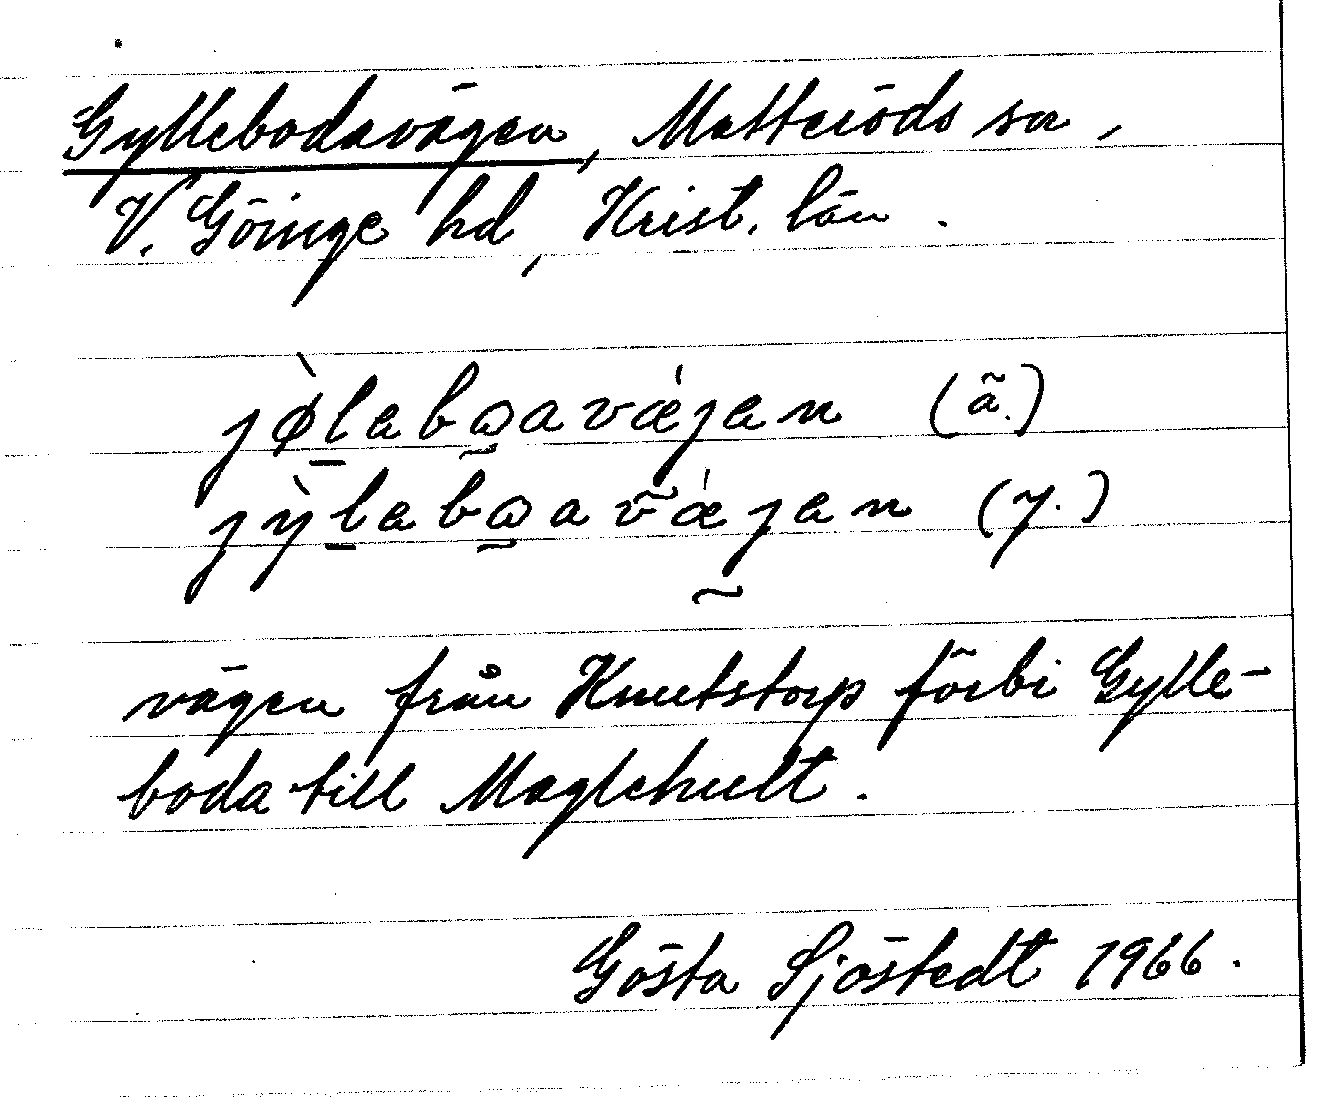 Gyllebodavägen, Matteröds sn,
V. Göinge hd, Krist. län.
jø̀labωavǽjan (ä.)
jỳlabωavǽjan (y.)
vägen från Knutstorp förbi Gylle-
boda till Maglehult.
Gösta Sjöstedt 1966.